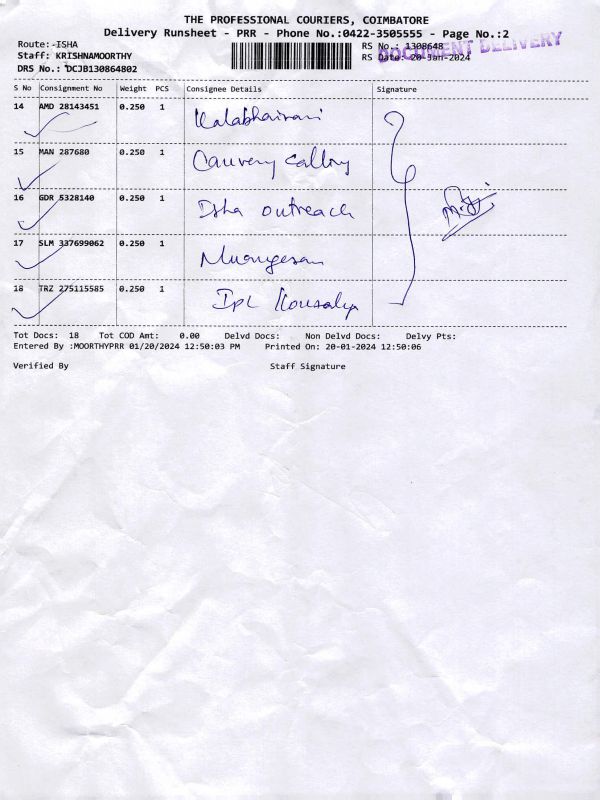 THE PROFESSIONAL COURIERS, COIMBATORE
Delivery Runsheet - PRR - Phone No.:0422-3505555 - Page No.:2
Route:-ISHA
RS No.: 1308648
DOCUMENT DELIVERY
Staff: KRISHNAMOORTHY
RS Date: 20-Jan-2024
DRS No.: DCJB130864802
S No Consignment No Weight PCS Consignee Details Signature
14 AMD 28143451 0.250 1 Kalabhairavi
15 MAN 287680 0.250 1 Cauvery
16 GDR 5328140 0.250 1 Isha outreach
17 SLM 337699062 0.250 1 Murugesan
18 TRZ 275115585 0.250 1 Kousalya
Tot Docs: 18 Tot COD Amt: 0.00 Delvd Docs: Non Delvd Docs: Delvy Pts:
Entered By :MOORTHYPRR 01/20/2024 12:50:03 PM Printed On: 20-01-2024 12:50:06
Verified By Staff Signature